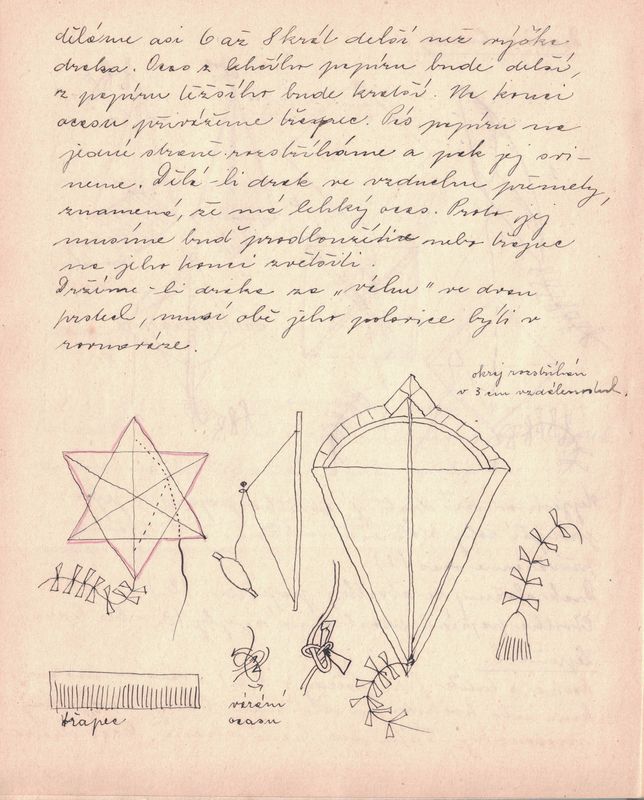 děláme asi 6 až 8 krát delší než výška
draka. Ocas z lehčího papíru bude delší,
z papíru těžšího bude kratší. Na konci
ocasu přivážeme třapec. Pás papíru na
jedné straně rozstříháme a pak jej svi-
neme. Dělá-li drak ve vzduchu přemety,
znamená, že má lehký ocas. Proto jej
musíme buď prodloužiti nebo třapec
na jeho konci zvětšiti.
Držíme-li draka za „váhu" ve dvou
prstech, musí obě jeho polovice býti v
rovnováze.
okraj rozstříhán
v 3 cm vzdálenostech.
třapec
vázání
ocasu